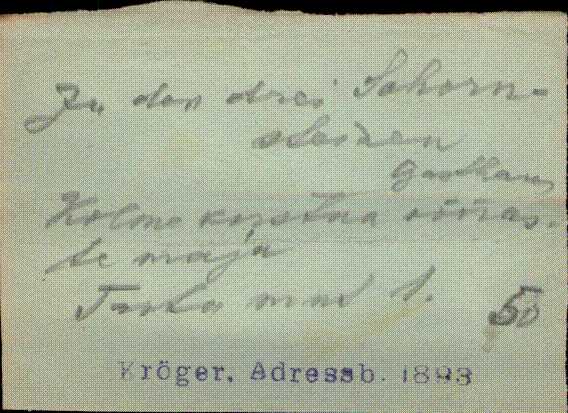 Zu den drei Schorn-
steinen
Gasthaus
Kolme korstna võõras-
te maja
Tartu mnt 1.
50
Kröger, Adressb. 1893